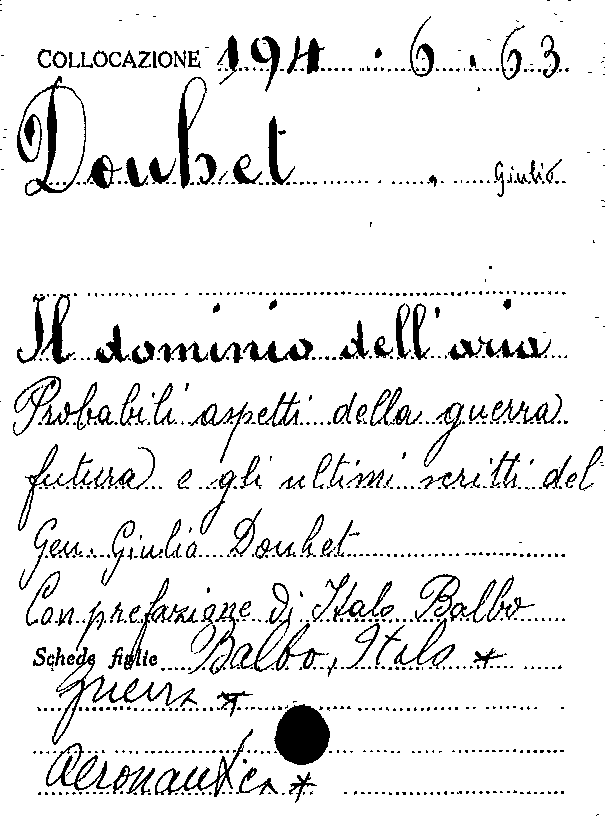 COLLOCAZIONE 194 . 6 . 63
Douhet . Giulio
Il dominio dell'aria
Probabili aspetti della guerra
futura e gli ultimi scritti del
Gen. Giulio Douhet
Con prefazione di Italo Balbo
Schede figlie Balbo, Italo *
Guerra *
Aeronautica *